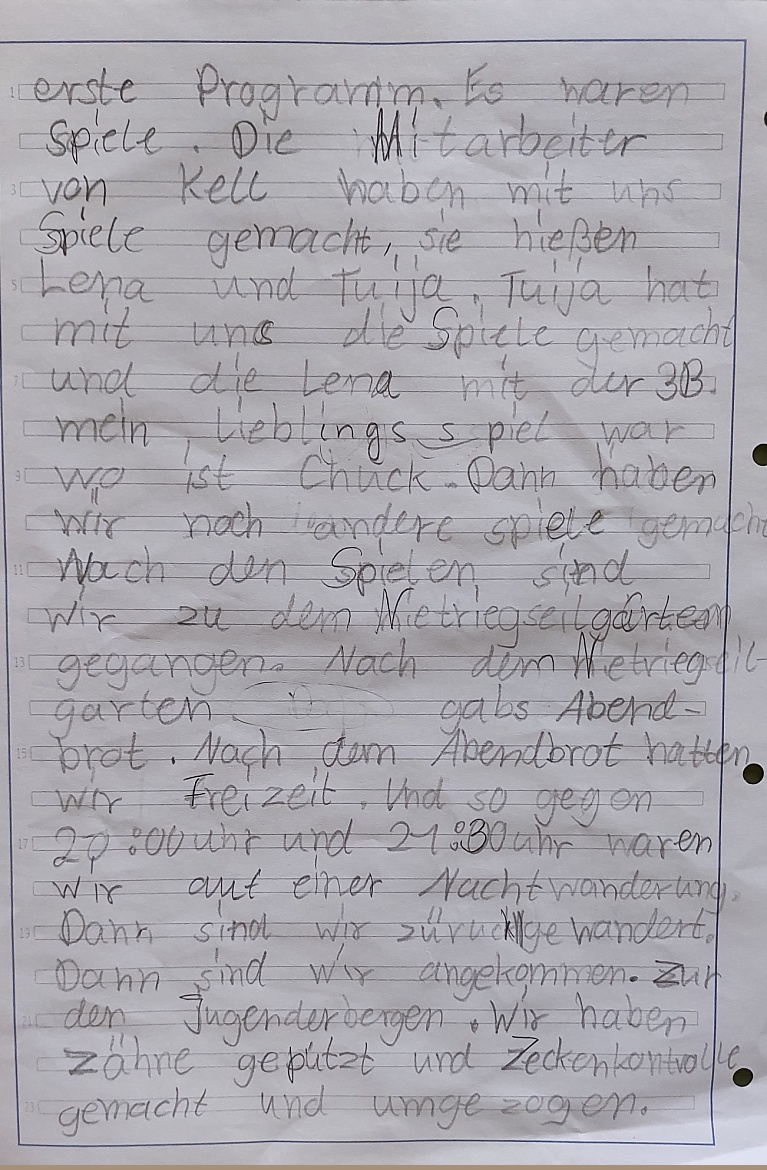 erste Programm. Es waren
Spiele. Die Mitarbeiter
von Kell haben mit uns
Spiele gemacht, sie hießen
Lena und Tuija. Tuija hat
mit uns die Spiele gemacht
und die Lena mit der 3B.
mein Lieblingsspiel war
wo ist Chuck. Dann haben
wir noch andere spiele gemacht
Nach den Spielen sind
wir zu dem Nietriegseilgarten
gegangen. Nach dem Nietriegseil-
garten gabs Abend-
brot. Nach dem Abendbrot hatten
wir Freizeit. Und so gegen
20:00 uhr und 21:30 uhr waren
wir auf einer Nachtwanderung.
Dann sind wir zürückgewandert.
Dann sind wir angekommen. Zur
den Jugenderbergen. Wir haben
Zähne geputzt und Zeckenkontrolle
gemacht und umgezogen.